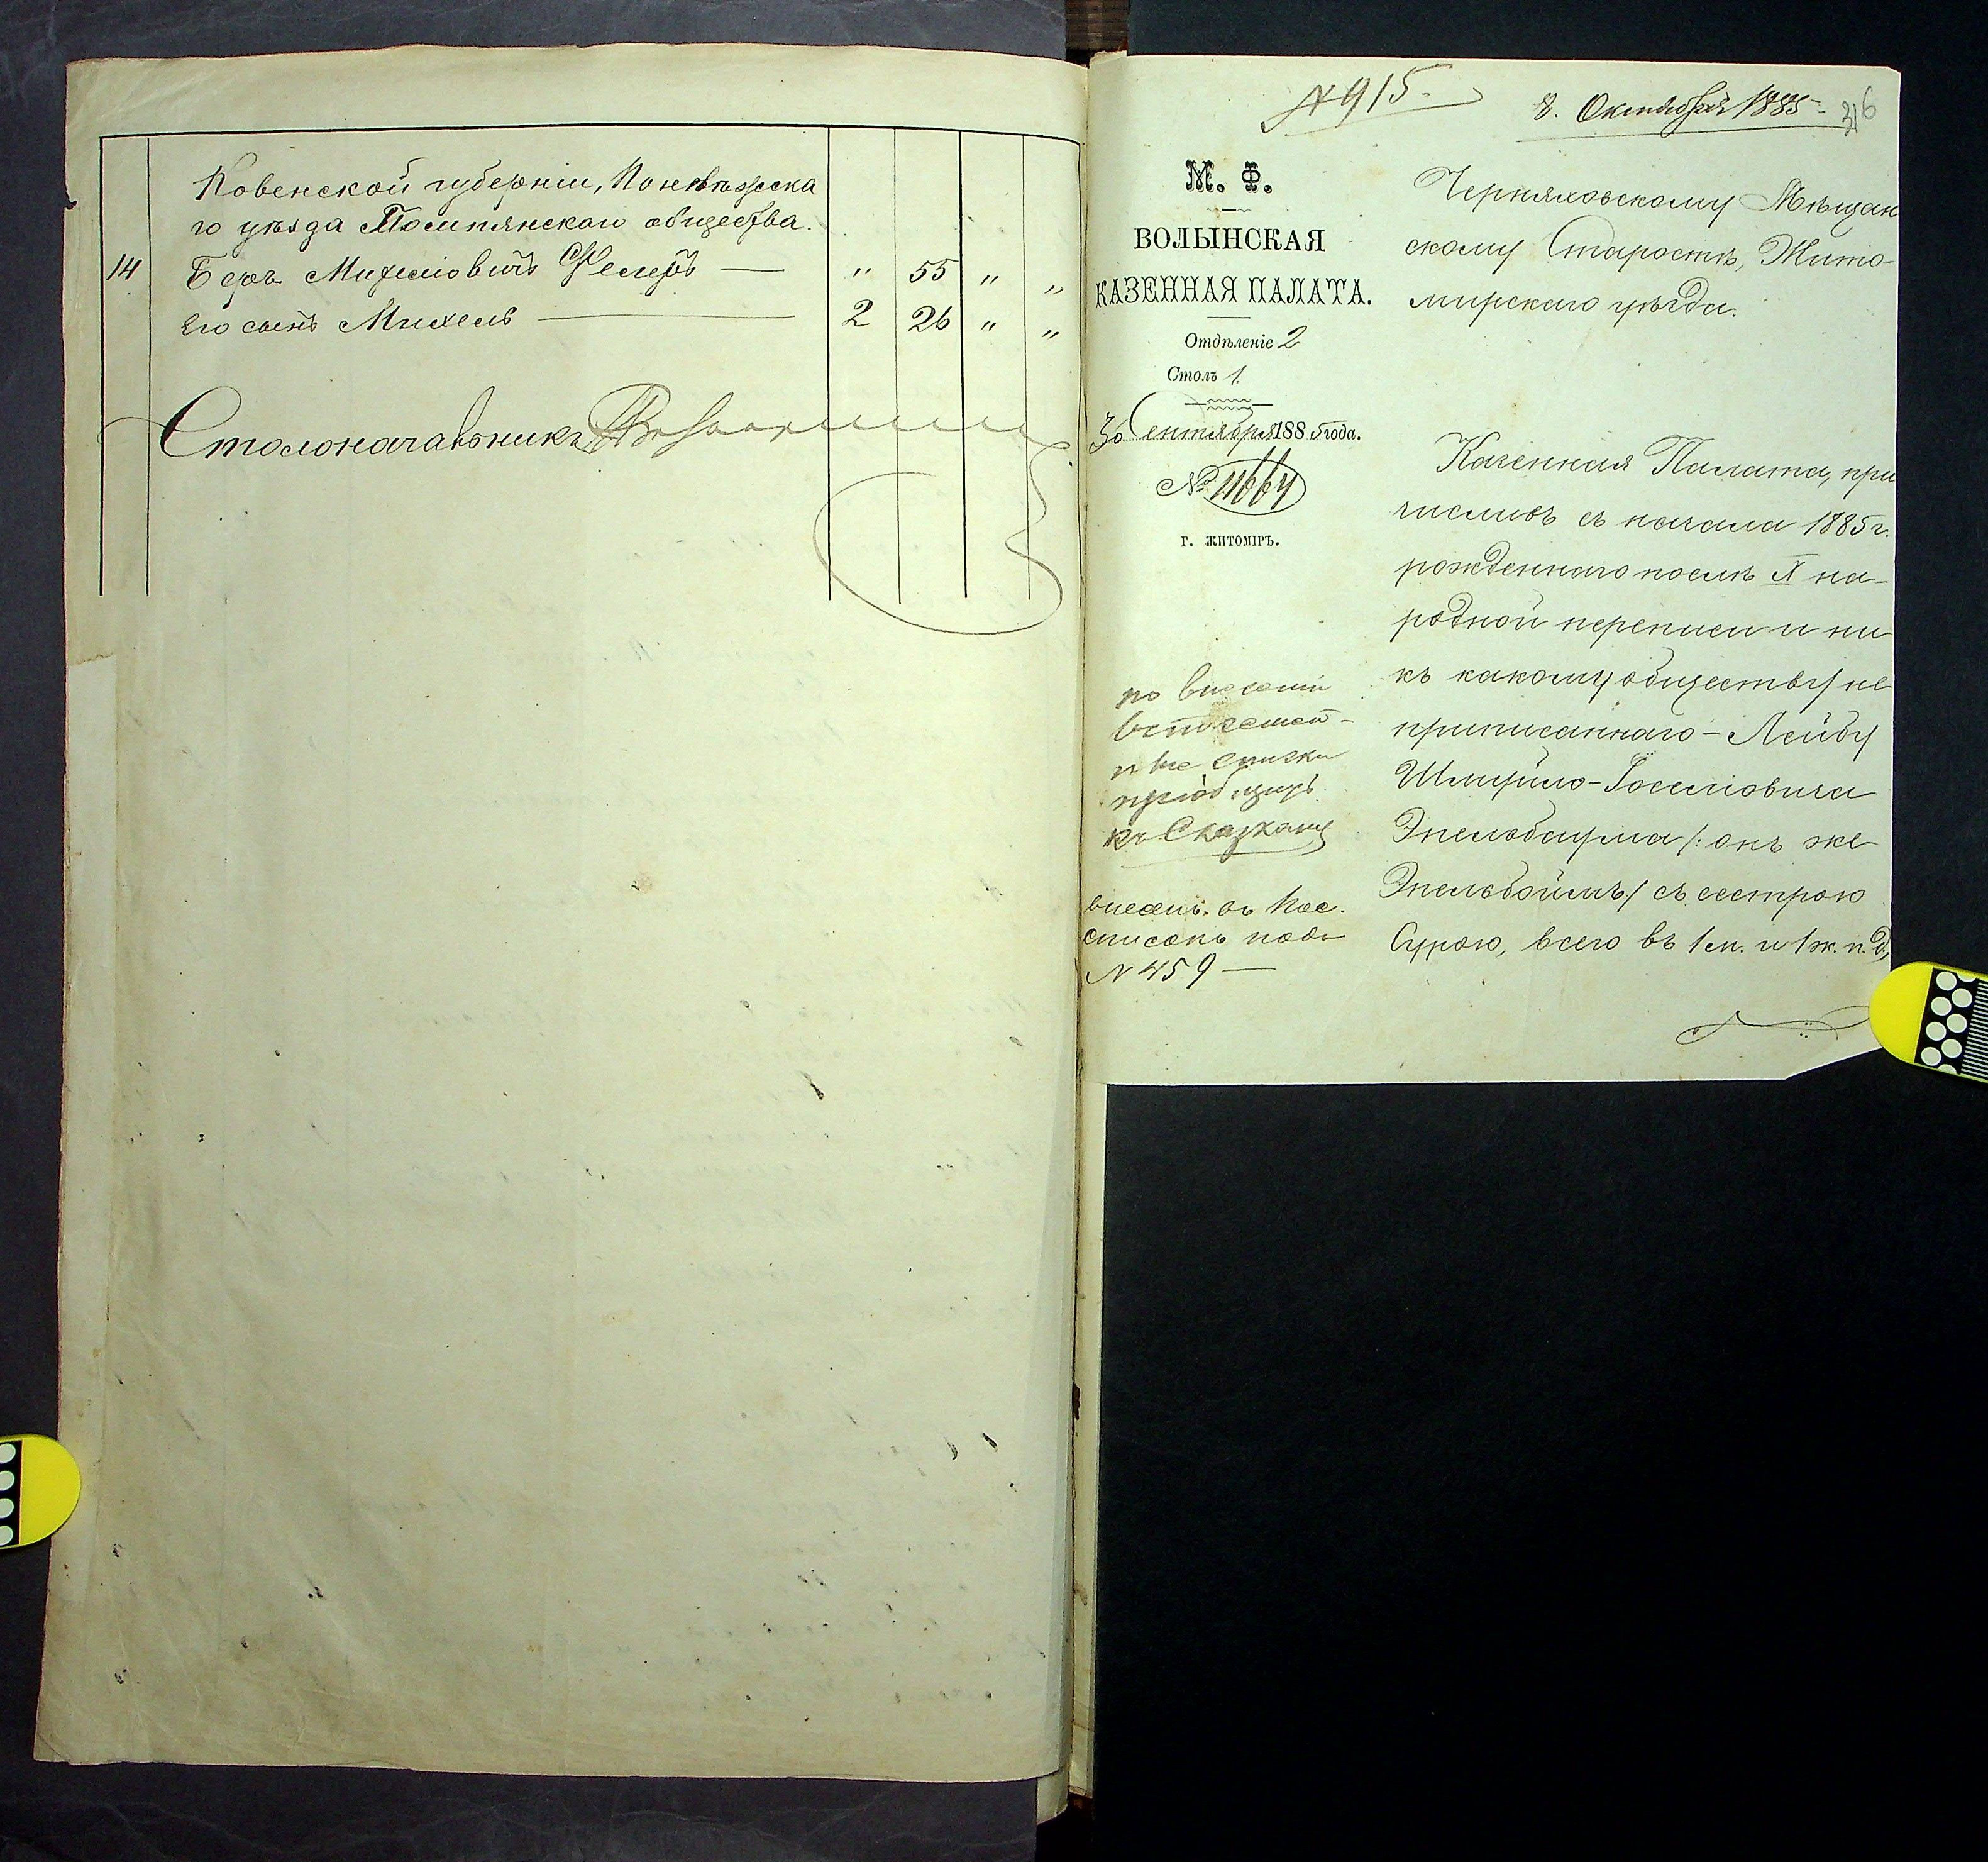 Ковенской губерніи, Поневѣжска
го уѣзда Помпянскаго общества.
14 Беръ Михелювичъ — " 55 " "
Его сынъ Михель — 2 26 " "
Столоначальникъ
№ 915.
8. Октября 1885 -
316
М. Ф.
ВОЛЫНСКАЯ
КАЗЕННАЯ ПАЛАТА.
Отдѣленіе 2
Столъ 1.
30 Сентября 1885 года.
№ 11664
г. ЖИТОМІРЪ.
по внесеніи
списки
къ Сказкамъ
внесенъ въ Пос.
списокъ подъ
№ 459 —
Черняховскому Мѣщан
скому Старостѣ, Жито-
мирскаго уѣзда.
Казенная Палата, при
числивъ съ начала 1885 г.
рожденнаго послѣ X на-
родной переписи и ни
къ какому обществу не
приписаннаго - Лейбу
Шмуйло-Іоселіовича
Эпельбаума /: онъ же
Эпельбоймъ :/ съ сестрою
Сурою, всего въ 1 м. и 1 ж. п. д,